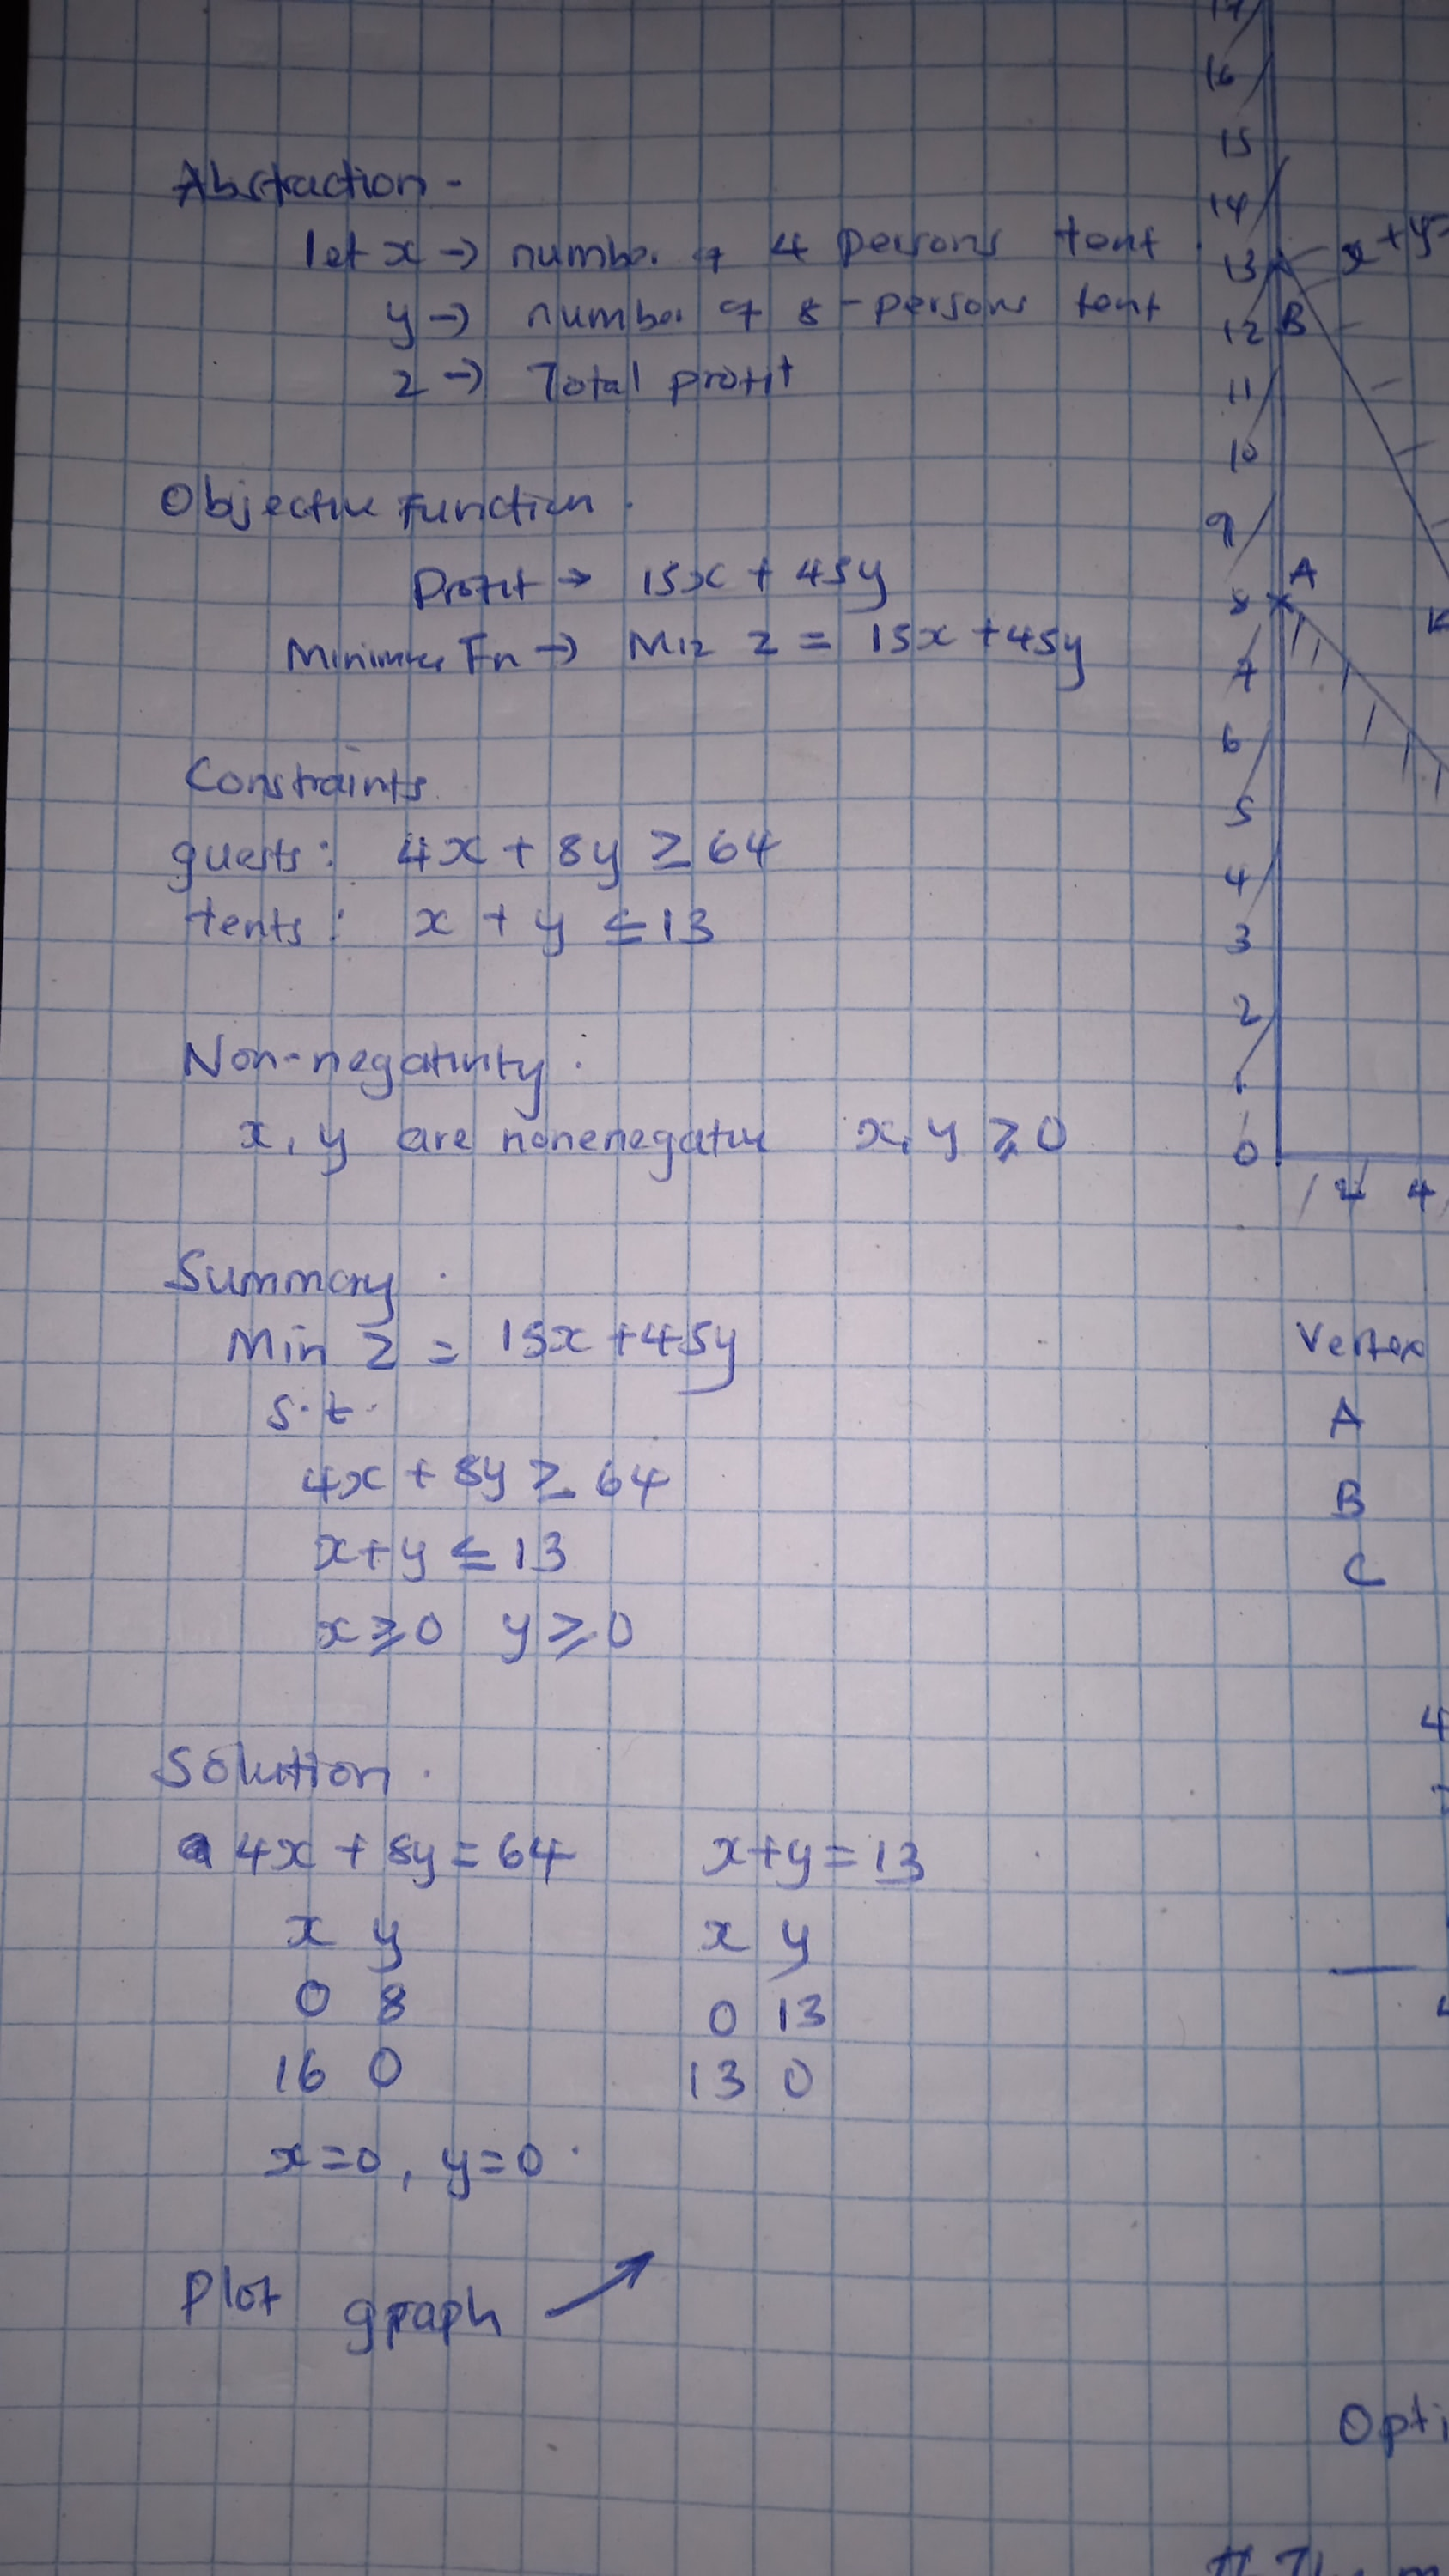 Abstraction -
let x → number of 4 persons tent
y → number of 8-persons tent
z → Total profit
Objective Function.
Profit → 15x + 45y
Fn → Miz z = 15x + 45y
Constraints
guests: 4x + 8y ≥ 64
tents: x + y ≤ 13
Non-negativity.
x, y are nonenegative x, y ≥ 0
Summary.
Min z = 15x + 45y
s.t.
4x + 8y ≥ 64
x + y ≤ 13
x ≥ 0 y ≥ 0
Solution.
4x + 8y = 64 x + y = 13
x y x y
0 8 0 13
16 0 13 0
x = 0, y = 0.
Plot graph
17
16
15
14
13 x + y
12 B
11
10
9
8 A
7
6
5
4
3
2
1
0
2 4
Vertex
A
B
C
4
Opti